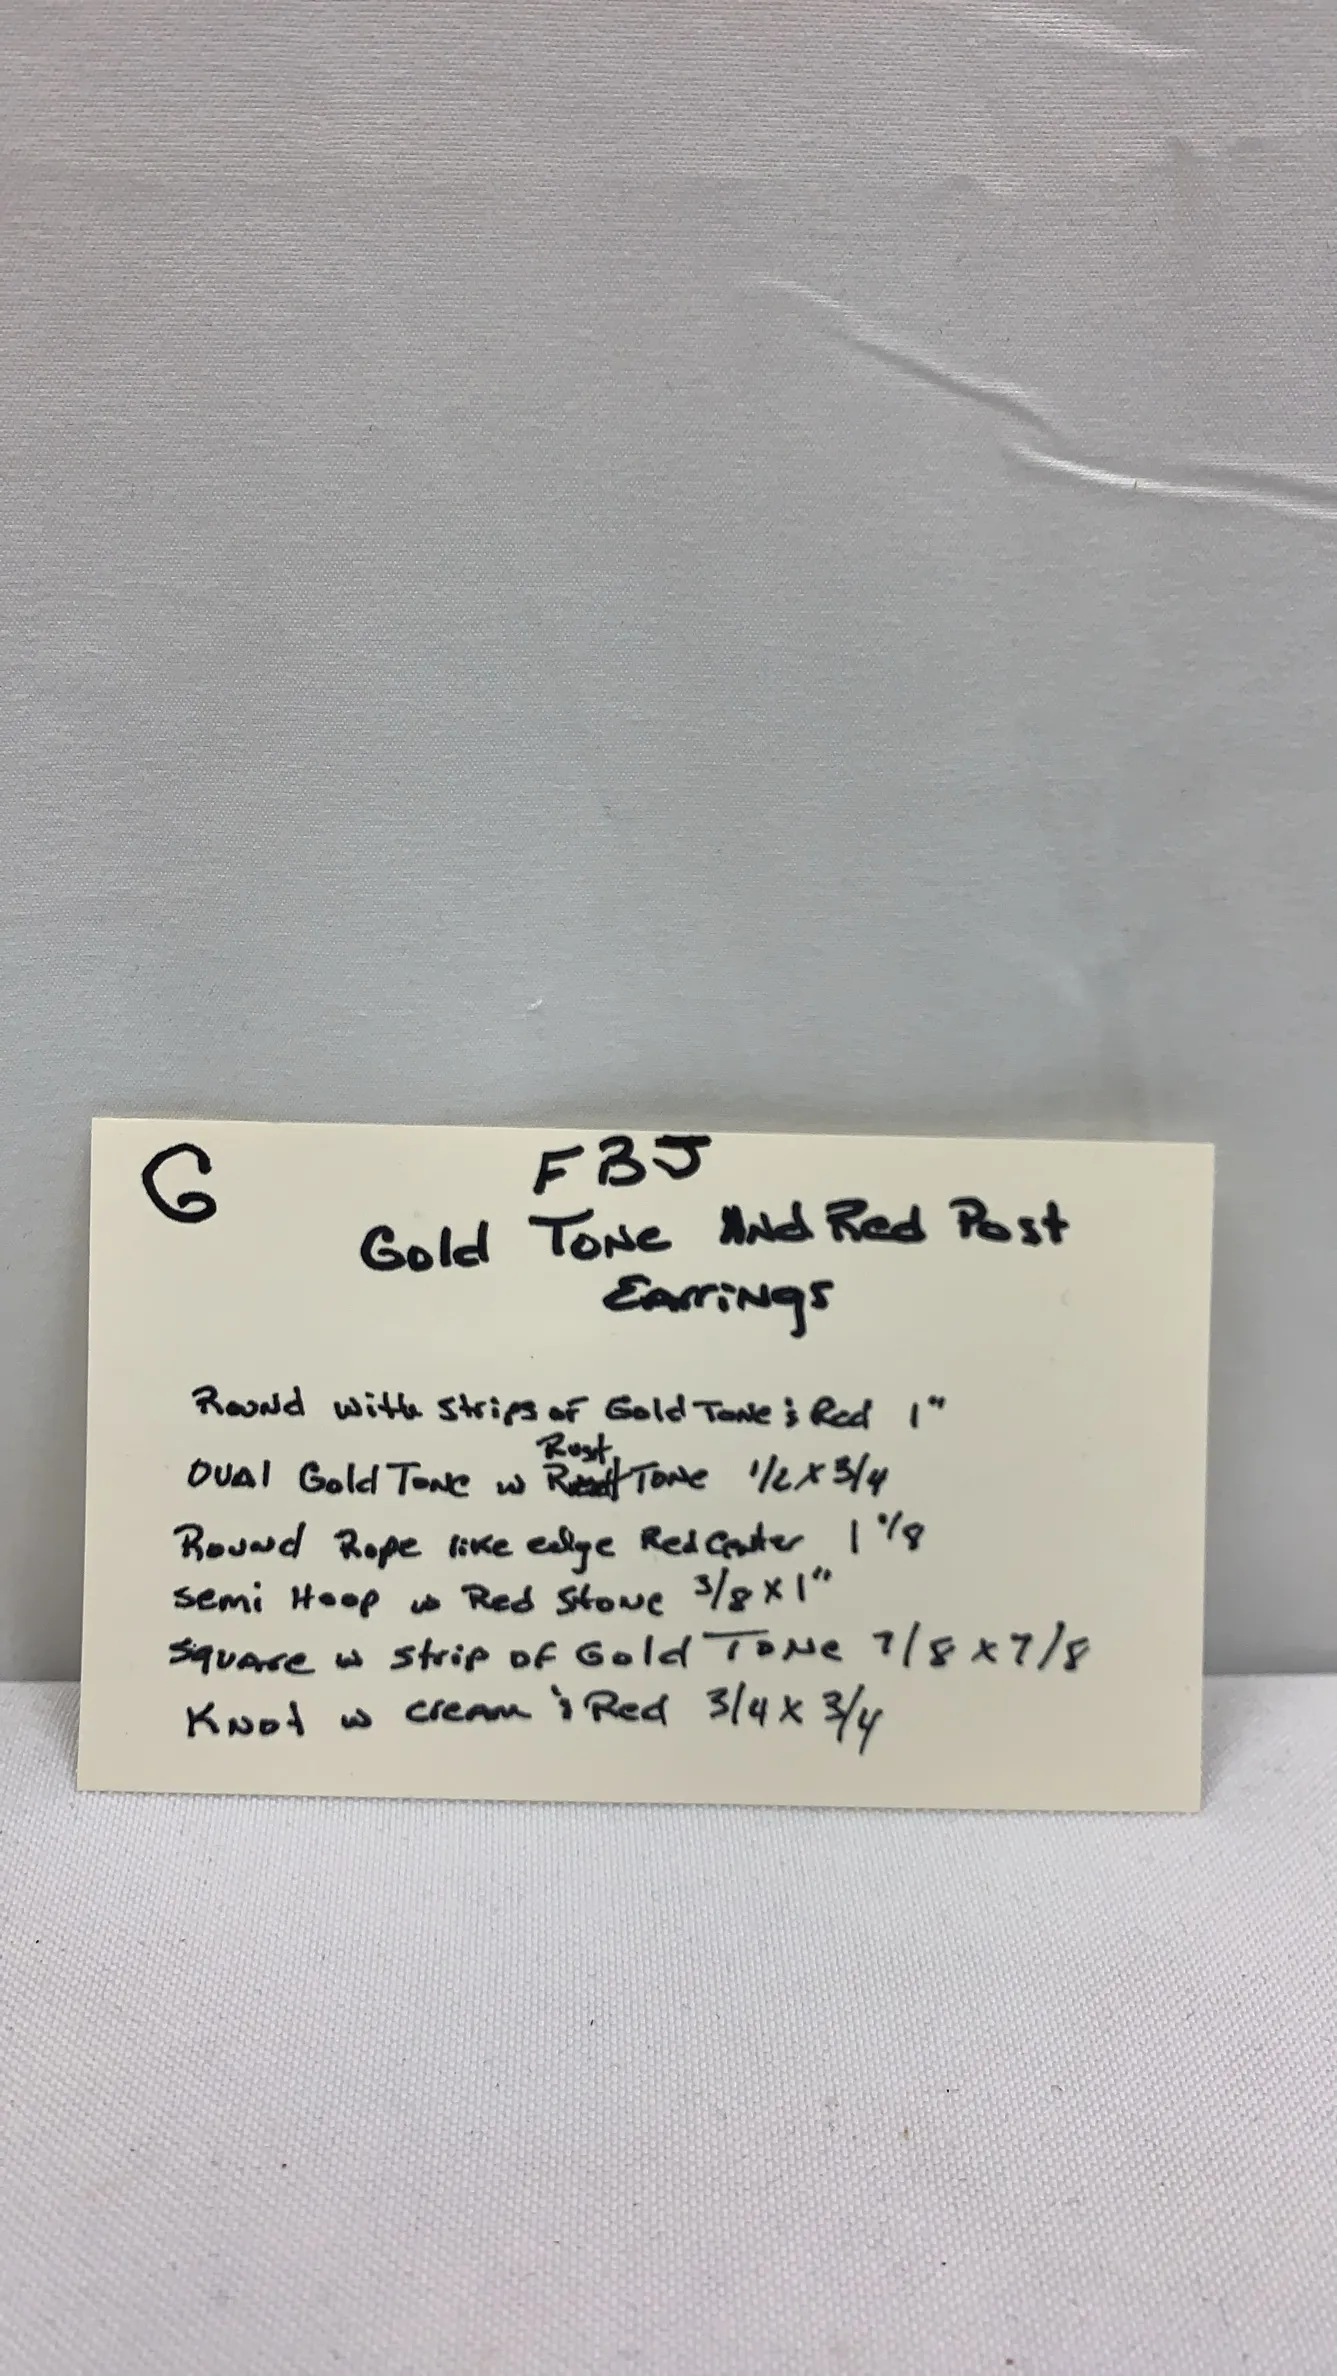 G
FBJ
Gold Tone And Red Post
Earrings
Round with strips of Gold Tone & Red 1"
Rust
Oval Gold Tone w Tone 1/2 x 3/4
Round Rope like edge Red Center 1 1/8
Semi Hoop w Red Stone 3/8 x 1"
Square w strip of Gold Tone 7/8 x 7/8
Knot w cream & Red 3/4 x 3/4